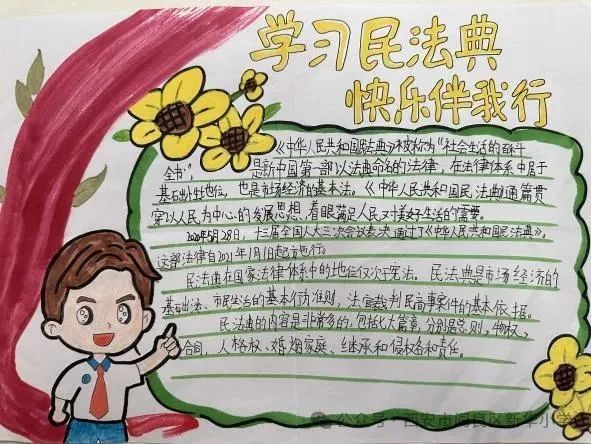 学习民法典
快乐伴我行
《中华人民共和国民法典》被称为"社会生活的百科
全书"， 是新中国第一部以法典命名的法律，在法律体系中居于
基础性地位，也是市场经济的基本法。《中华人民共和国民法典》通篇贯
穿以人民为中心的发展思想，着眼满足人民对美好生活的需要。
2020年5月28日，十三届全国人大三次会议表决通过了《中华人民共和国民法典》，
这部法律自2021年1月1日起施行。
民法典在国家法律体系中的地位仅次于宪法，民法典是市场经济的
基础法、市民生活的基本行为准则，法官裁判民商事案件的基本依据。
民法典的内容是非常多的，包括七大篇章，分别是总则，物权、
合同，人格权、婚姻家庭、继承和侵权和责任。
公众号·西安市阎良区新华小学